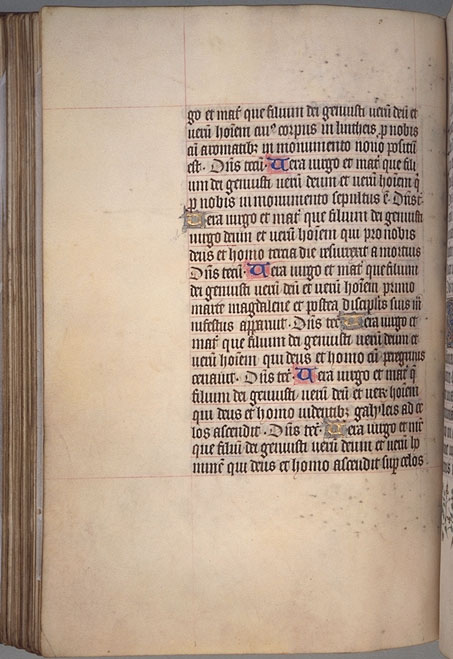 go et mat̄ que filium dei genuisti uerū deū et
uerū hoīem cuiꝰ corpus in lintheis ꝓ nobis
cū aromatibꝫ in monumento nouo positū
est · Dn̄s tecū · Uera uirgo et mat̄ que fili
um dei genuisti uerū deum et uerū hoīem q̄
ꝓ nobis in monumento sepultus ē · Dn̄s t̄
Uera uirgo et mat̄ que filium dei genuisti
uirgo deum et uerū hoīem qui pro nobis
deus et homo tercia die resurrexit a mortuis
Dn̄s tecū · Uera uirgo et mat̄ que filium
dei genuisti uerū deū et uerū hoīem primo
marie magdalene et postea disciplis suis m̄
nifestus apparuit · Dn̄s tec̄ Uera uirgo et
mat̄ que filium dei genuisti uerū deum et
uerū hoīem qui deus et homo cū peregrinis
cenauit · Dn̄s tec̄ · Uera uirgo et mat̄ q̄
filium dei genuisti uerū deū et uerū hoīem
qui deus et homo uidentibꝫ galyleis ad ce
los ascendit · Dn̄s tec̄ · Uera uirgo et mr̄
que filiū dei genuisti uerum deum et uerū ho
minē qui deus et homo ascendit suꝑ celos